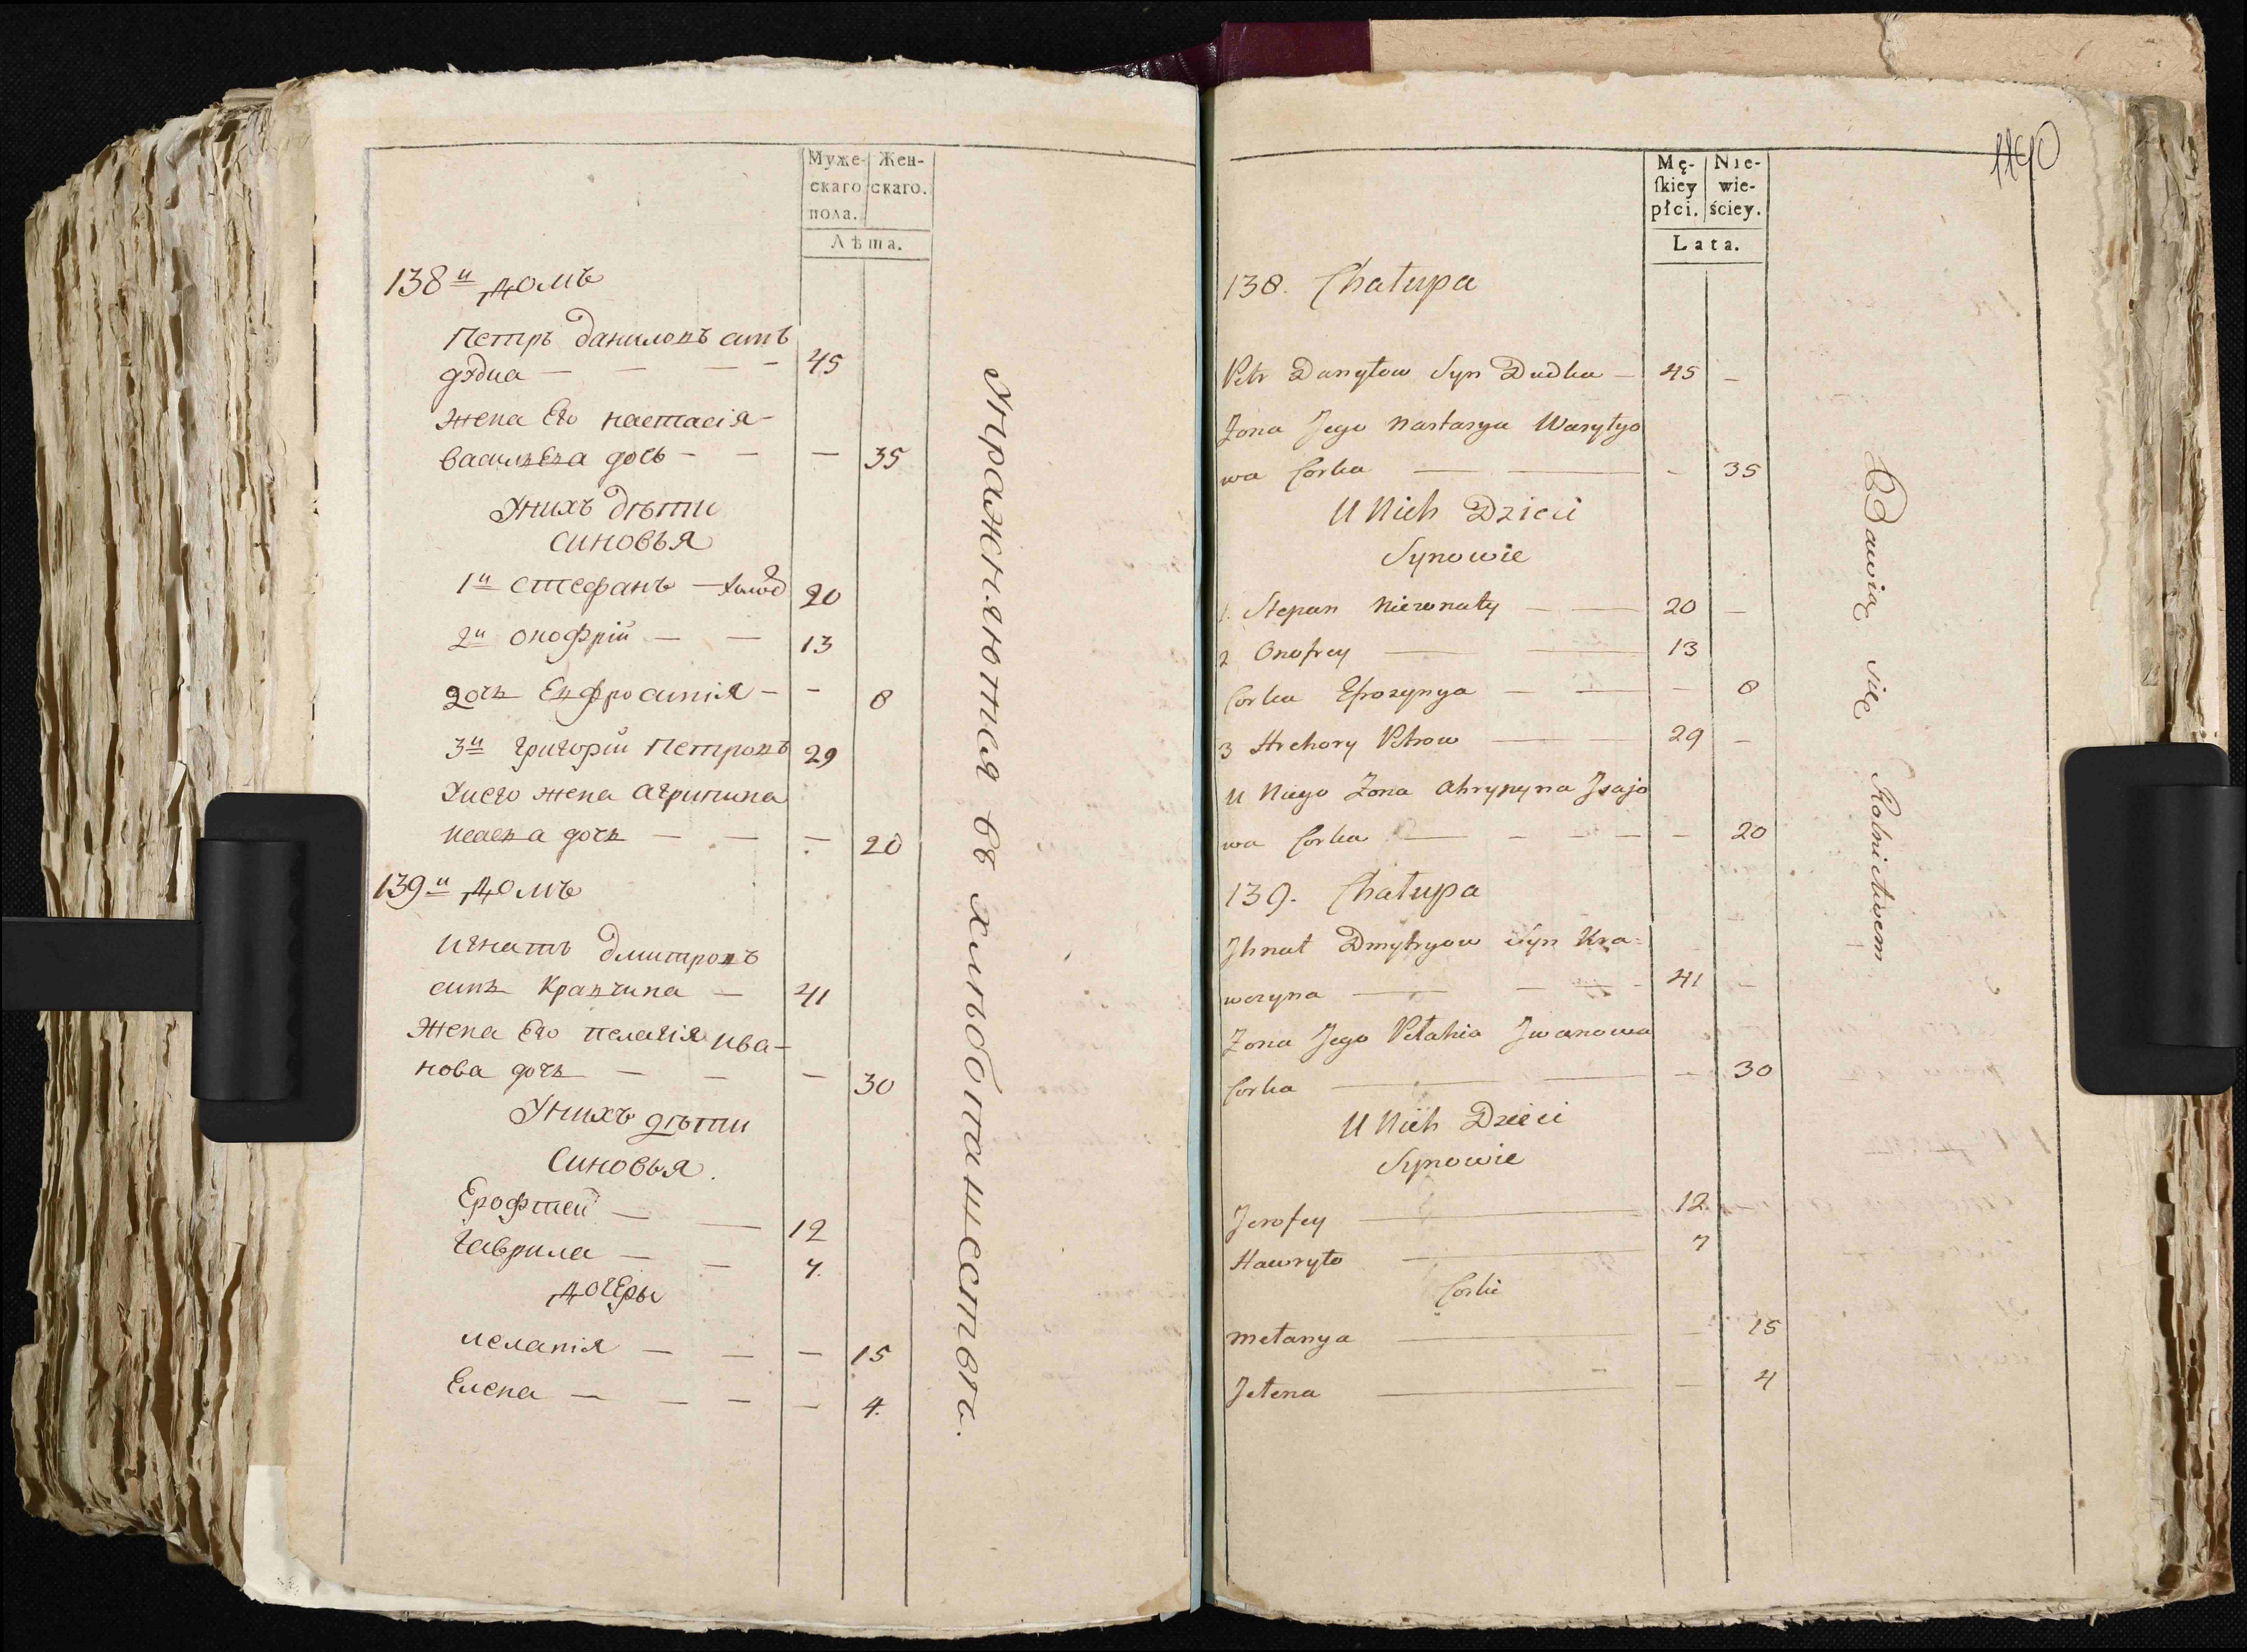 Муже- Жен-
скаго скаго.
пола.
Лѣта.
138й домъ
Петръ даниловъ синъ
дудка — — — — 45
жена Его настасія
василева дочь — — — 35
Унихъ дѣти
синовья
1й стефанъ — холос 20
2й онофрій — — 13
дочь Евфросинія — — 8
3й григорій Петровъ 29
Унего жена агрипина
исаева дочь — — — 20
139й домъ
игнатъ дмитровъ
синъ Кравчина — 41
жена Его пелагія ива-
нова дочь — — — 30
Унихъ дѣти
Синовья.
Ерофтей — — 12
гаврила — — 7.
дочеры
мелания — — — 15
Елена — — — — 4.
Упражняются въ хлѣбопашествѣ.
1190
Mę- Nie-
ſkiey wie-
płci. ściey.
Lata.
138. Chałupa
Petr Danyłow Syn Dudka — 45 —
Zona Jego Nastasya Wasylyo
wa Corka — — - 35
U Nich Dzieci
Synowie
1. Stepan Niezonaty — — 20 —
2 Onofrey — — 13
Corka Efrozynya — — — 8
3 Hrehory Petrow — — 29 —
U Niego Zona Ahrypyna Jsajo
wa Corka — — — — — 20
139. Chałupa
Jhnat Dmytryow Syn Kra=
wczyna — — — 41 —
Zona Jego Pełahia Jwanowa
Corka — — — 30
U Nich Dzieci
Synowie
Jerofey — 12
Hawryło — 7
Corki
Mełanya — — 15
Jełena — — 4
Bawią się Rolnictwem